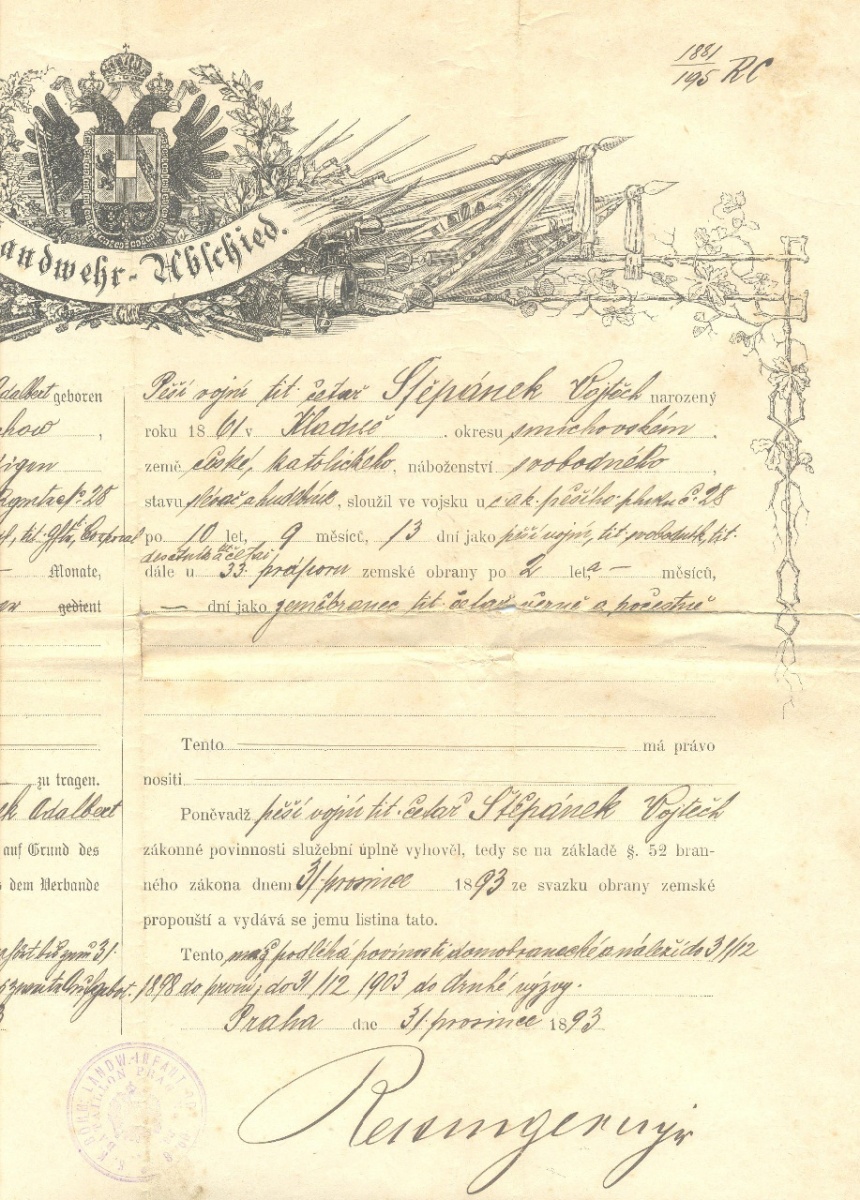 1881
195 RC
andwehr-Abschied.
Adalbert geboren
Pěší vojín tit. četař Štěpánek Vojtěch narozený
how ,
roku 1861 v Hladně okresu smíchovském ,
igen
země české, katolického, náboženství svobodného ,
No 28
stavu slévač a hudebník, sloužil ve vojsku u c. a k. pěšího pluku č. 28
tit. Gfrt, Corporal
po 10 let, 9 měsíců, 13 dní jako pěší vojín, tit. svobodník, tit.
desátník a četař
— Monate,
dále u 33. práporu zemské obrany po 2 leta — měsíců,
gedient
— dní jako zeměbranec tit. četař věrně a počestně
Tento má právo
zu tragen.
nositi
ek Adalbert
Poněvadž pěší vojín tit. četař Štěpánek Vojtěch
auf Grund des
zákonné povinnosti služební úplně vyhověl, tedy se na základě §. 52 bran-
dem Verbande
ného zákona dnem 31. prosince 1893 ze svazku obrany zemské
propouští a vydává se jemu listina tato.
31.
Tento muž podléhá povinosti domobranecké a náleží do 31/12
Aufgebot.
1898 do první, do 31/12 1903 do druhé výzvy.
3
Praha dne 31. prosince 1893
K. K. BÖHM. LANDW. INFANT.
BATAILLON PRAG